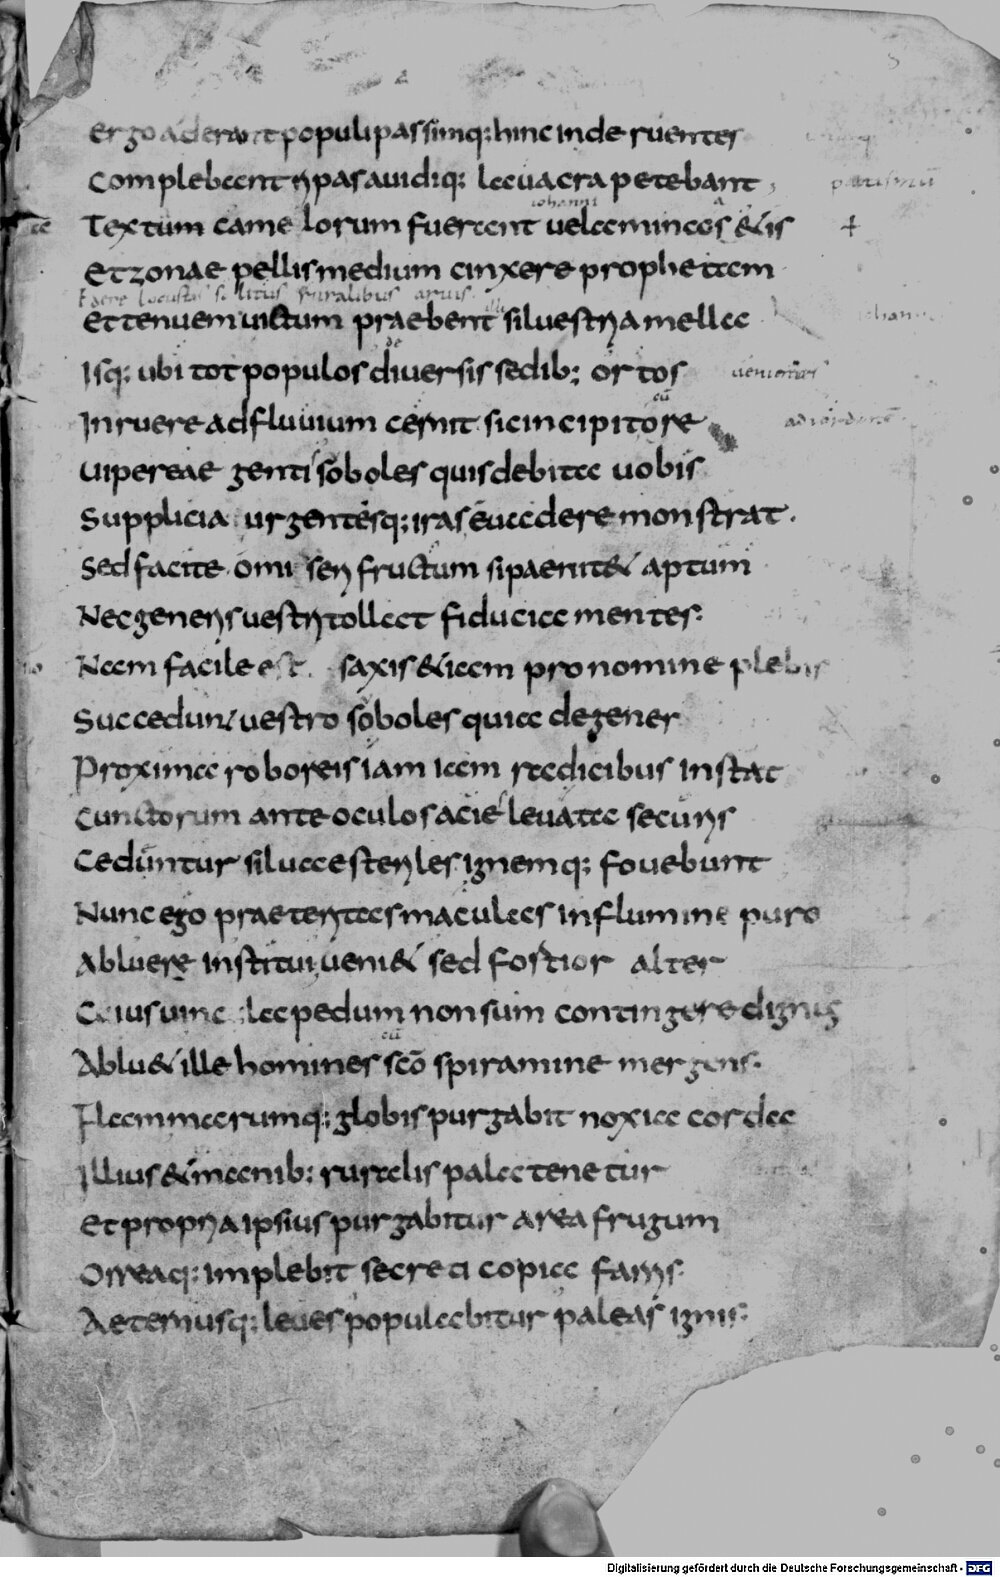 ergo aderant populi passimq: hinc inde ruentes
Complebant ripas auidiq: lauacra petebant
Textum camelorum fuerant uelamina &is
iohanni
Et zonae pellis medium cinxere prophetam
Edere locustas solitus ruralibus aruis
et tenuem uictum praebent siluestria mella
Isq: ubi tot populos diuersis sedib: ortos
uenientes
Inruere ad fluuium cernit sic incipit ore
Uipereae genti soboles quis debita uobis
Supplicia urgentesq: iras euadere monstrat.
Sed facite omi seri fructum si paenit& aptum
Nec generis uestri tollat fiducia mentes:
Nam facile est saxis &iam pro nomine plebis
Succedunt uestro soboles quia degener
Proxima roboreis iam iam radicibus instat
Cunctorum ante oculos acies leuata securis
Ceduntur siluae steriles ignemq: fouebunt
Nunc ego praeteritas maculas in flumine puro
Abluere institui, ueni& sed fortior alter
Cuius uincla pedum non sum contingere dignus
Ablu& ille homines sco spiramine mergens.
Flammarumq: globis purgabit noxia corda
Illius &manib: ruralis pala tenetur
Et propria ipsius purgabitur area frugum
Orreaq: implebit secreti copia farris.
Aeternusq: leues populabitur paleas ignis:
Digitalisierung gefördert durch die Deutsche Forschungsgemeinschaft - DFG